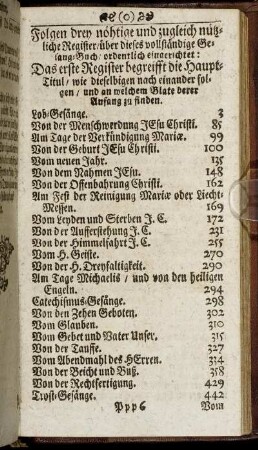 (o)
Folgen drey nöhtige und zugleich nütz-
liche Register/über dieses vollständige Ge-
sang-Buch/ordentlich eingerichtet:
Das erste Register begreifft die Haupt-
Titul/ wie dieselbigen nach einander fol-
gen / und an welchem Blate derer
Anfang zu finden.
Lob-Gesänge. 3
Von der Menschwerdung JEsu Christi. 85
Am Tage der Verkündigung Mariæ. 99
Von der Geburt JEsu Christi. 100
Vom neuen Jahr. 135
Von dem Nahmen JEsu. 148
Von der Offenbahrung Christi. 162
Am Fest der Reinigung Mariæ oder Liecht-
Messen. 169
Vom Leyden und Sterben J. C. 172
Von der Aufferstehung J. C. 231
Von der Himmelfahrt J. C. 255
Vom H. Geiste. 270
Von der H. Dreyfaltigkeit. 290
Am Tage Michaelis / und von den heiligen
Engeln. 294
Catechismus-Gesänge. 298
Von den Zehen Geboten. 302
Vom Glauben. 310
Vom Gebet und Vater Unser. 315
Von der Tauffe. 327
Vom Abendmahl des HErren. 334
Von der Beicht und Buß. 358
Von der Rechtfertigung. 429
Trost-Gesänge. 442
Ppp6 Vom